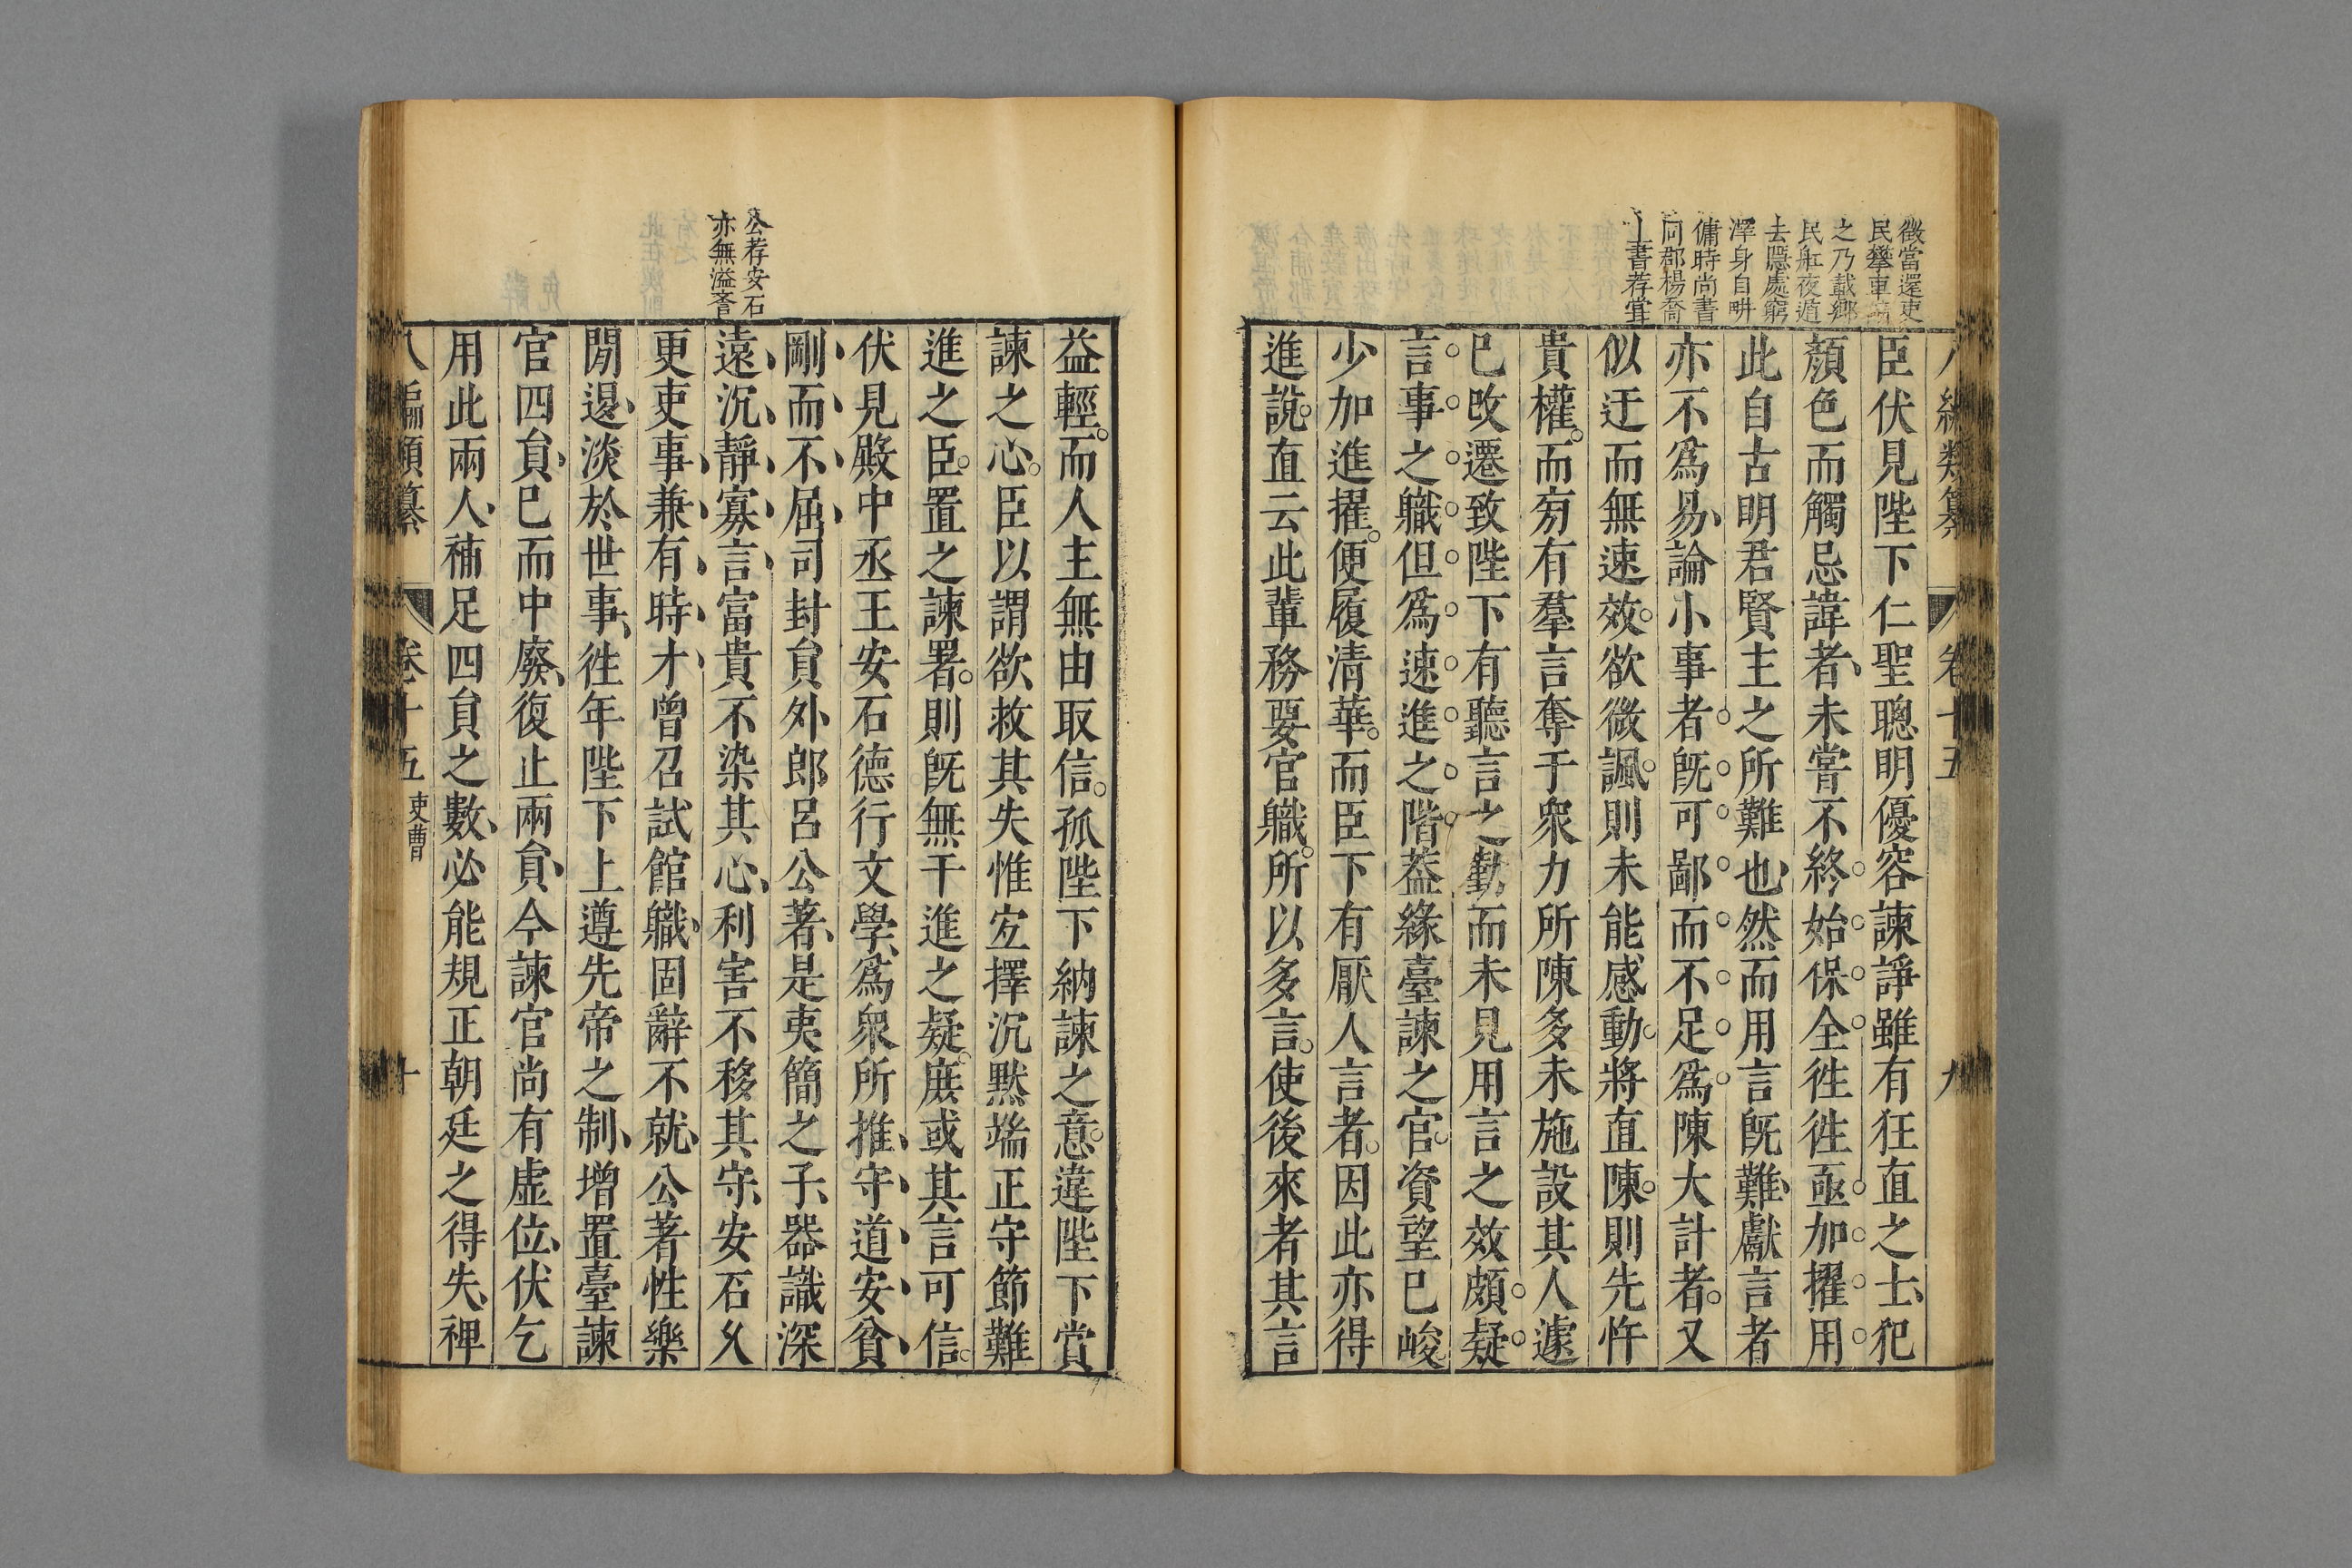 徵當還吏
民攀車
之乃載鄉
民舡夜遁
去隱處窮
澤身自畊
傭時尚書
同郡楊喬
上書荐甞
八編類纂 卷十五 九
臣伏見陛下仁聖聰明優容諫諍雖有狂直之士犯
顏色而觸忌諱者未嘗不終始保全徃徃亟加擢用
此自古明君賢主之所難也然而用言旣難獻言者
亦不爲易論小事者旣可鄙而不足爲陳大計者又
似迂而無速效欲微諷則未能感動將直陳則先忤
貴權而旁有羣言奪于衆力所陳多未施設其人遽
已改遷致陛下有聽言之勤而未見用言之效頗疑
言事之職但爲速進之階葢緣臺諫之官資望已峻
少加進擢便履清華而臣下有厭人言者因此亦得
進說直云此輩務要官職所以多言使後來者其言
公荐安石
亦無溢言
益輕而人主無由取信孤陛下納諫之意違陛下賞
諫之心臣以謂欲救其失惟宐擇沉默端正守節難
進之臣置之諫署則旣無干進之疑庶或其言可信
伏見殿中丞王安石德行文學爲衆所推守道安貧
剛而不屈司封貟外郎呂公著是夷簡之子器識深
遠沉靜寡言富貴不染其心利害不移其守安石久
更吏事兼有時才曾召試館職固辭不就公著性樂
閒退淡於世事徃年陛下上遵先帝之制增置臺諫
官四貟已而中廢復止兩貟今諫官尚有虛位伏乞
用此兩人補足四貟之數必能規正朝廷之得失裨
八編類纂 卷十五 吏曹 十